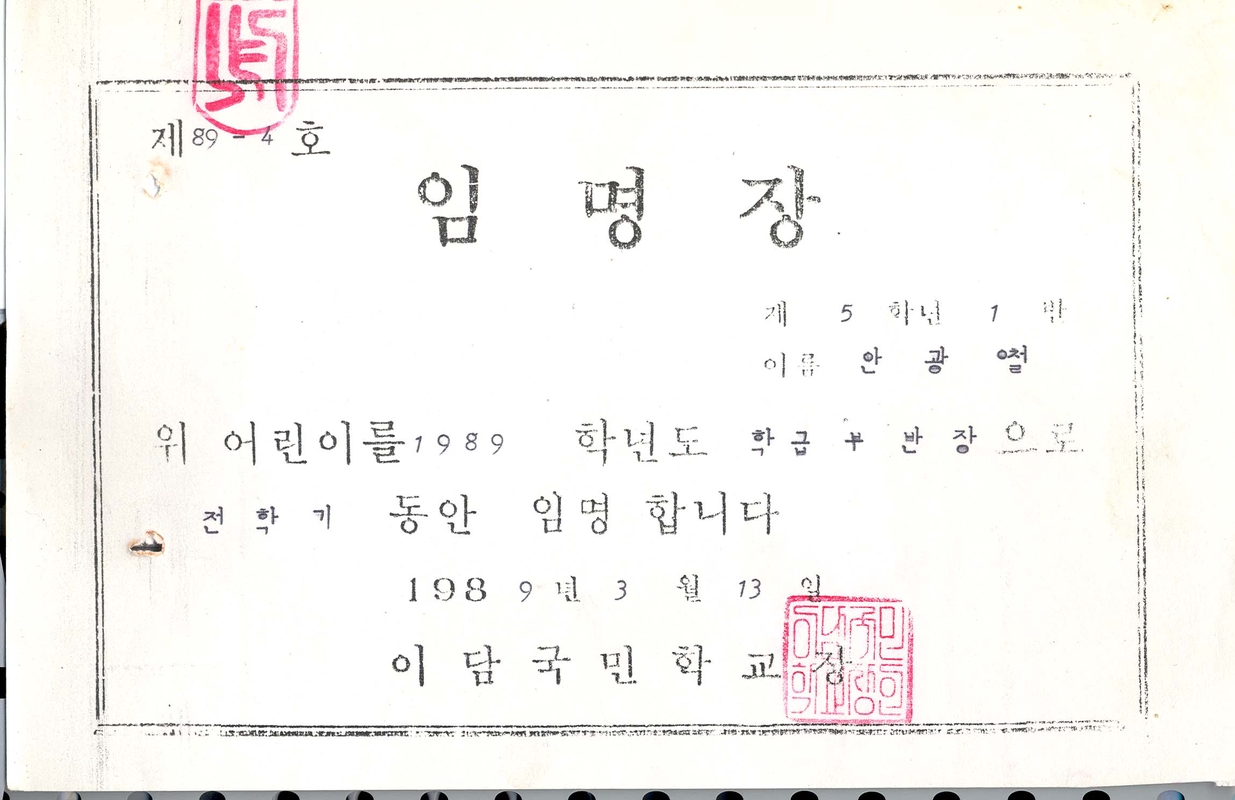 제 89 - 4 호
임 명 장
제 5 학년 1 반
이름 안 광 철
위 어린이를 1989 학년도 학급 부 반 장 으로
전 학 기 동안 임명 합니다
198 9 년 3 월 13 일
이 담 국 민 학 교 장